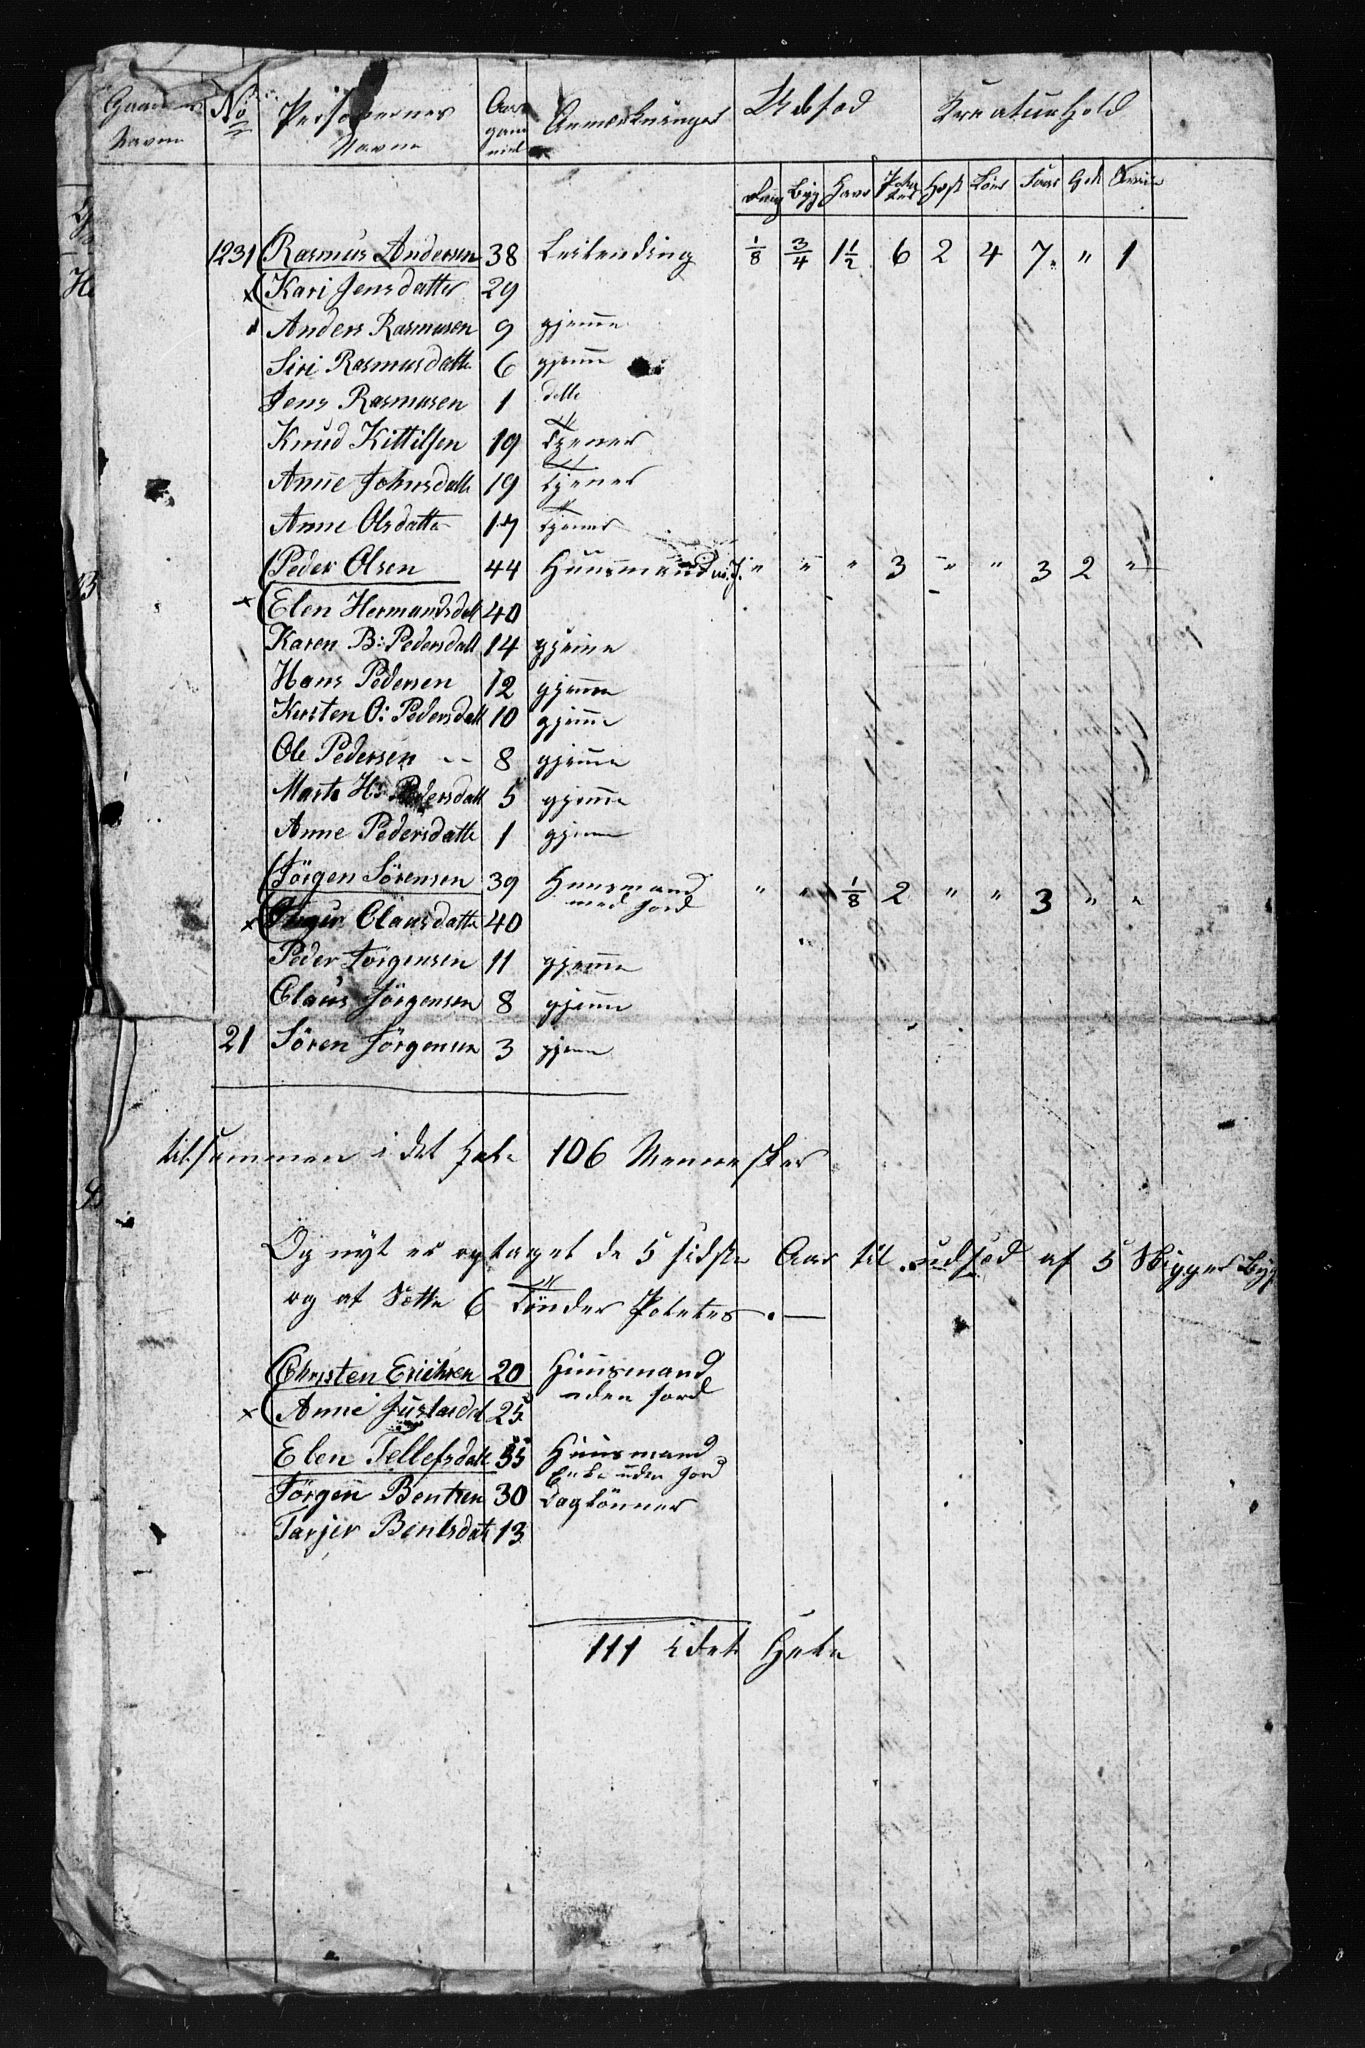 Gaardens Navne No Personernes Navne Aar gammel Anmærkninger Udsæd Kreaturhold
Rug Byg Havr Potetes Hest Kiør Faar Geed Sviin
1231 Rasmus Andersen 38 Leilending 1/8 3/4 1 1/2 6 2 4 7 " 1
x Kari Jensdatter 29
Anders Rasmusen 9 hjemme
Siri Rasmusdatte 6 hjemme
Jens Rasmusen 1 dette
Knud Kittilsen 19 Tjener
Anne Johnsdatte 19 Tjener
Anne Olsdatter 17 Tjener
Peder Olsen 44 Huusmand m. J. " " " 3 " " 3 2 "
x Elen Hermansdat 40
Karen B: Pedersdatt 14 hjemme
Hans Pedersen 12 hjemme
Kirsten O: Pedersdatt 10 hjemme
Ole Pedersen -- 8 hjemme
Marte H: Pedersdatt 5 hjemme
Anne Pedersdatte 1 hjemme
Jörgen Sörensen 39 Huusmand med Jord " " 1/8 2 " " 3 " "
x Clausdatte 40
Peder Jorgensen 11 hjemme
Claus Jörgensen 8 hjemme
21 Sören Jörgensen 3 hjemme
tilsammen i det Hele 106 Mennesker
Og nyt er optaget de 5 sidste Aar til udsæd af 5 Skigger Byg
og at Sætte 6 Tönder Potetes. —
Christen Erichsen 20 Huusmand uden Jord
x Anne 25
Elen Tellefsdatt 55 Huusmand Enke uden Jord
Jörgen Bentsen 30 Daglönner
Tarjer Bentsdatt 13
111 i det Hele